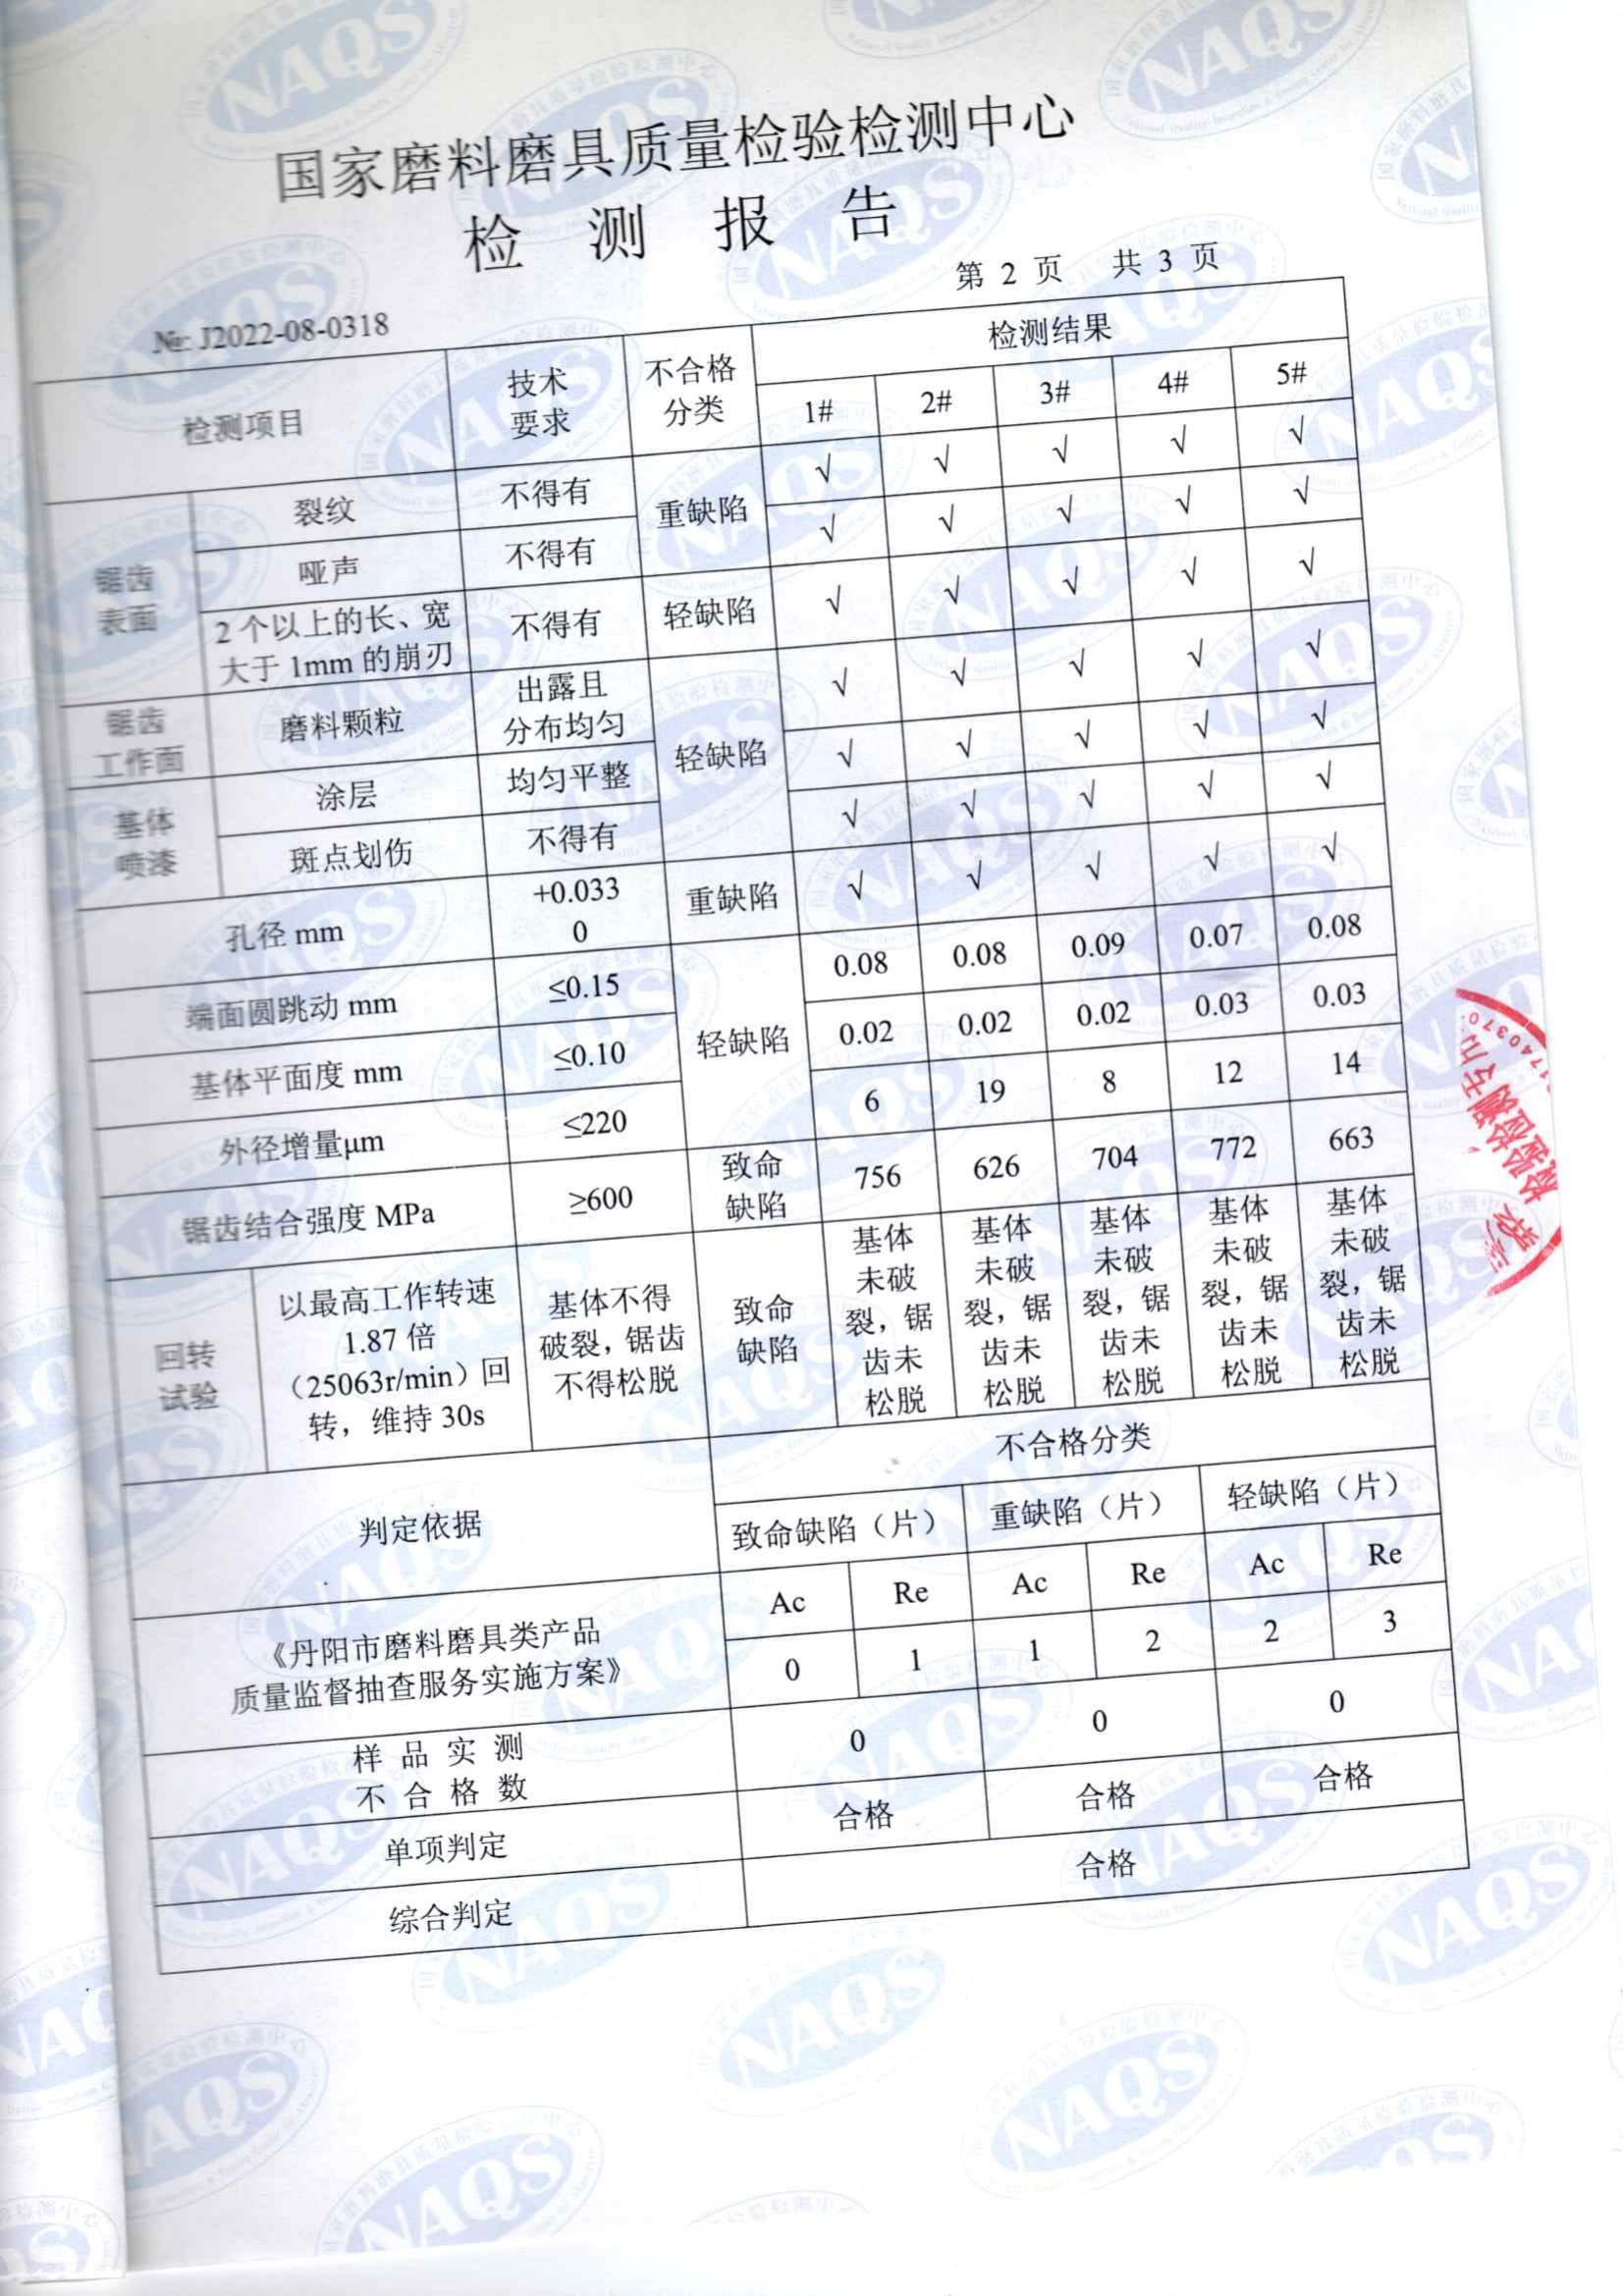 国家磨料磨具质量检验检测中心
检 测 报 告
第 2 页 共 3 页
№: J2022-08-0318
检测项目 技术要求 不合格分类 检测结果
1# 2# 3# 4# 5#
锯齿表面 裂纹 不得有 重缺陷 √ √ √ √ √
哑声 不得有 √ √ √ √ √
2 个以上的长、宽大于 1mm 的崩刃 不得有 轻缺陷 √ √ √ √ √
锯齿工作面 磨料颗粒 出露且分布均匀 轻缺陷 √ √ √ √ √
基体喷漆 涂层 均匀平整 √ √ √ √ √
斑点划伤 不得有 √ √ √ √ √
孔径 mm +0.033 0 重缺陷 √ √ √ √ √
端面圆跳动 mm ≤0.15 轻缺陷 0.08 0.08 0.09 0.07 0.08
基体平面度 mm ≤0.10 0.02 0.02 0.02 0.03 0.03
外径增量μm ≤220 6 19 8 12 14
锯齿结合强度 MPa ≥600 致命缺陷 756 626 704 772 663
回转试验 以最高工作转速 1.87 倍（25063r/min）回转，维持 30s 基体不得破裂，锯齿不得松脱 致命缺陷 基体未破裂，锯齿未松脱 基体未破裂，锯齿未松脱 基体未破裂，锯齿未松脱 基体未破裂，锯齿未松脱 基体未破裂，锯齿未松脱
判定依据 不合格分类
致命缺陷（片） 重缺陷（片） 轻缺陷（片）
Ac Re Ac Re Ac Re
《丹阳市磨料磨具类产品质量监督抽查服务实施方案》 0 1 1 2 2 3
样 品 实 测 不 合 格 数 0 0 0
单项判定 合格 合格 合格
综合判定 合格
NAQS